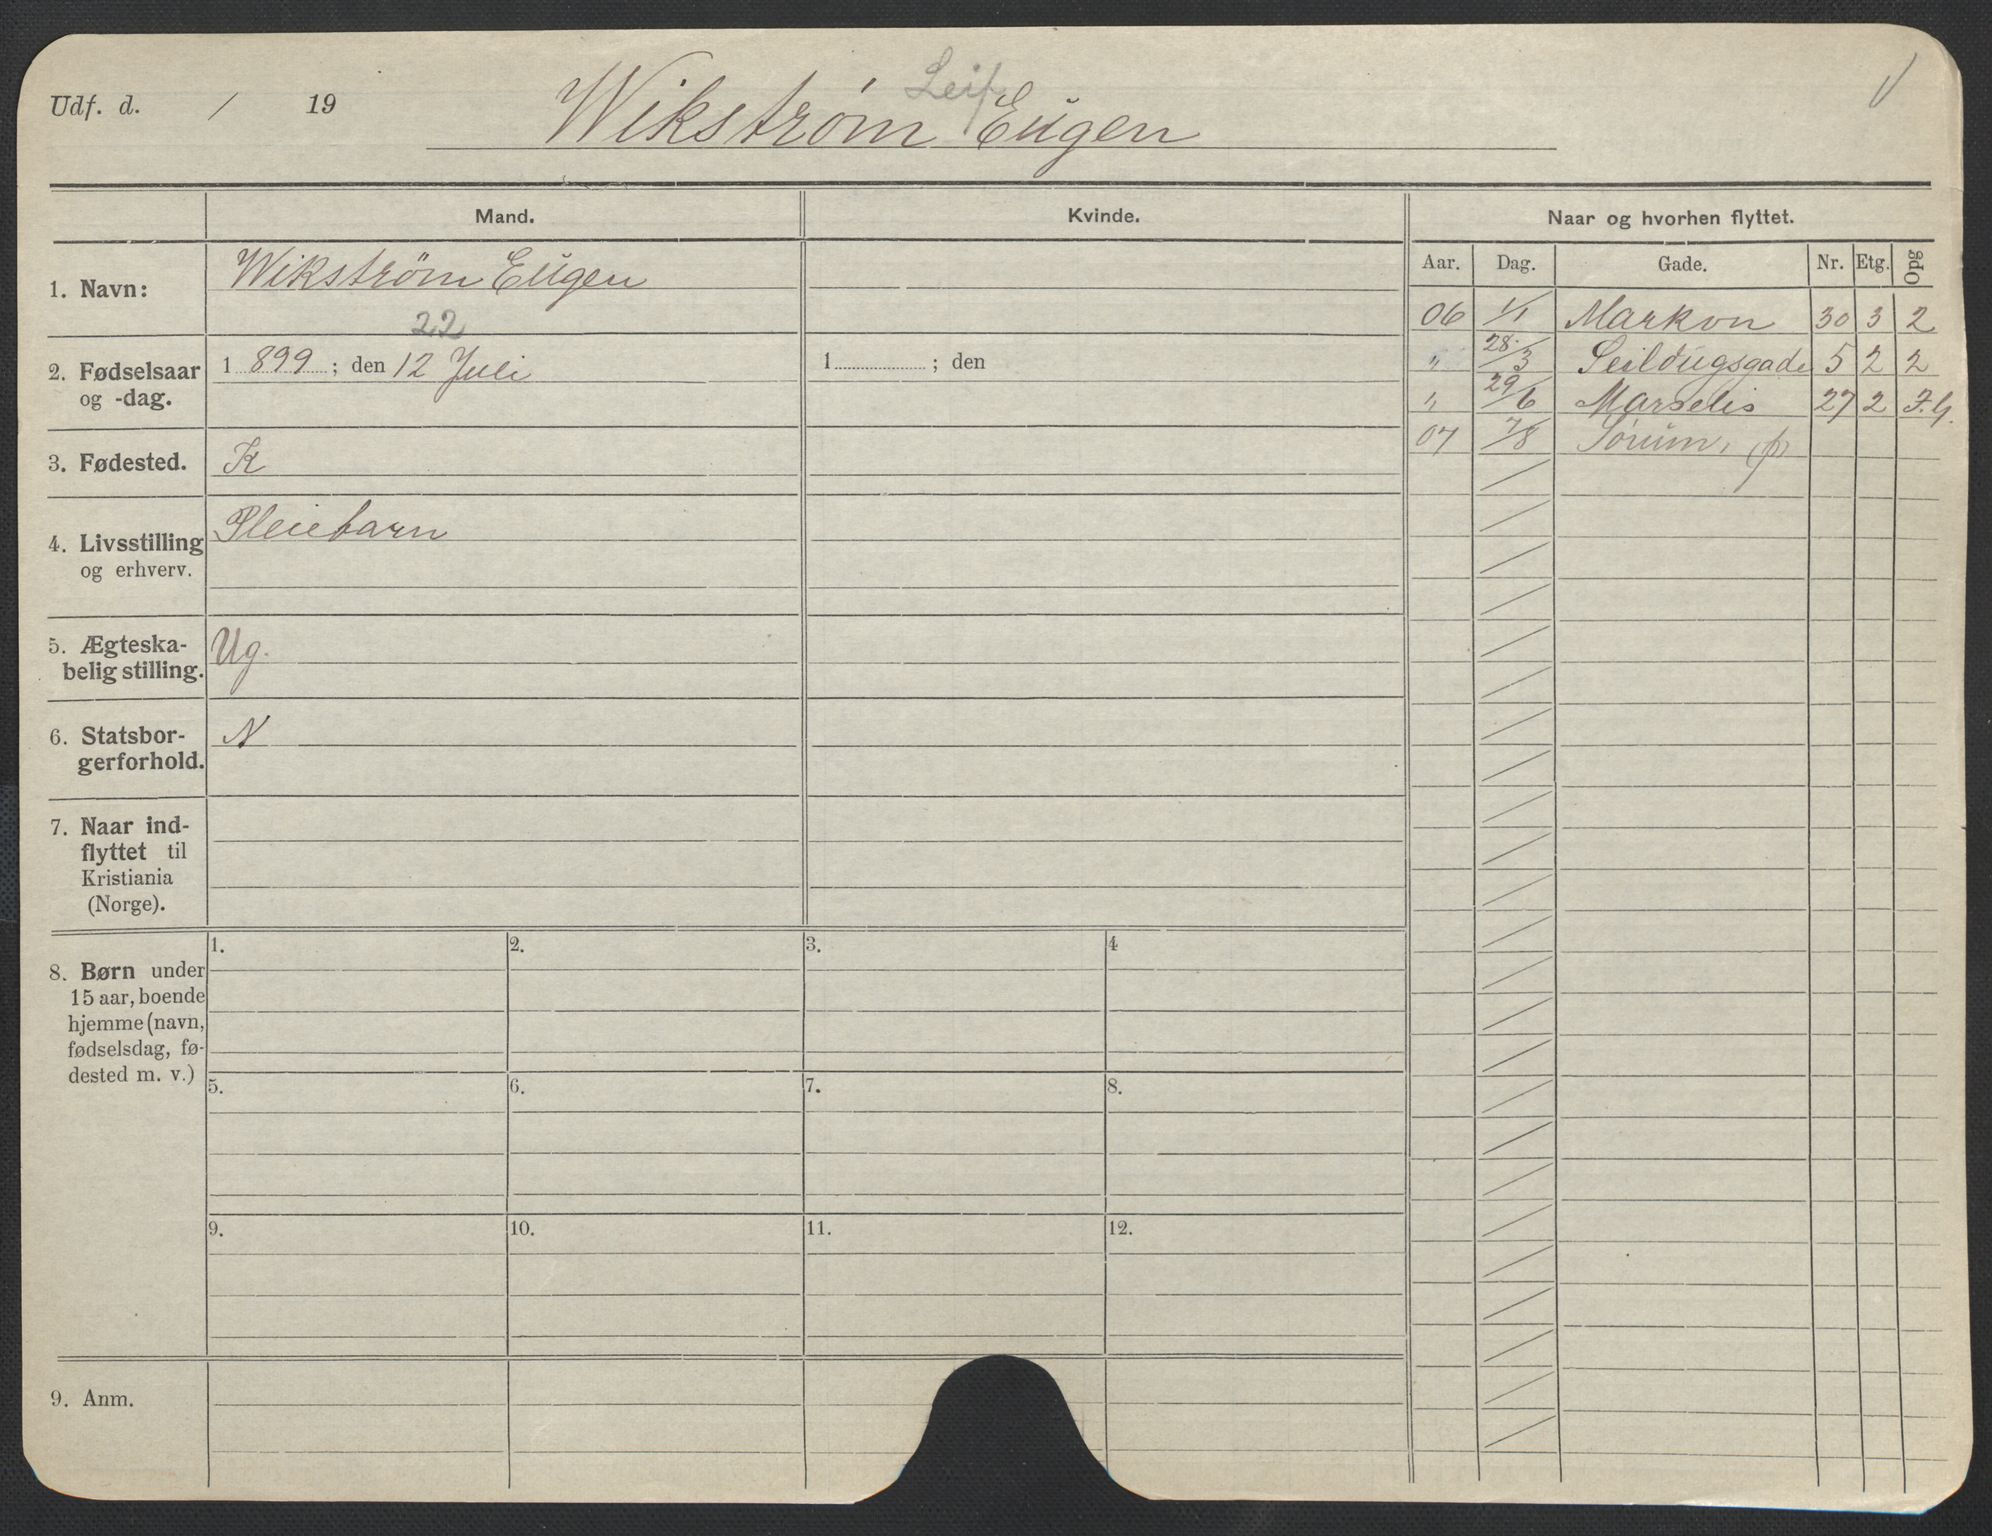 Udf. d. / 19
Leif
Wikstrøm Eugen
Mand. Kvinde. Naar og hvorhen flyttet.
Aar. Dag. Gade. Nr. Etg. Opg
1. Navn: Wikstrøm Eugen
22
2. Fødselsaar og -dag. 1 899 ; den 12 Juli 1 ; den
3. Fødested. K
4. Livsstilling og erhverv. Pleiebarn
5. Ægteska-
belig stilling. Ug.
6. Statsbor-
gerforhold. N
7. Naar ind-
flyttet til
Kristiania
(Norge).
06 1/1 Markvn 30 3 2
" 28/3 Seildugsgade 5 2 2
" 29/6 Marselis 27 2 F.G.
07 7/8 Sørum, (p)
8. Børn under
15 aar, boende
hjemme (navn,
fødselsdag, fø-
dested m. v.)
1. 2. 3. 4
5. 6. 7. 8.
9. 10. 11. 12.
9. Anm.